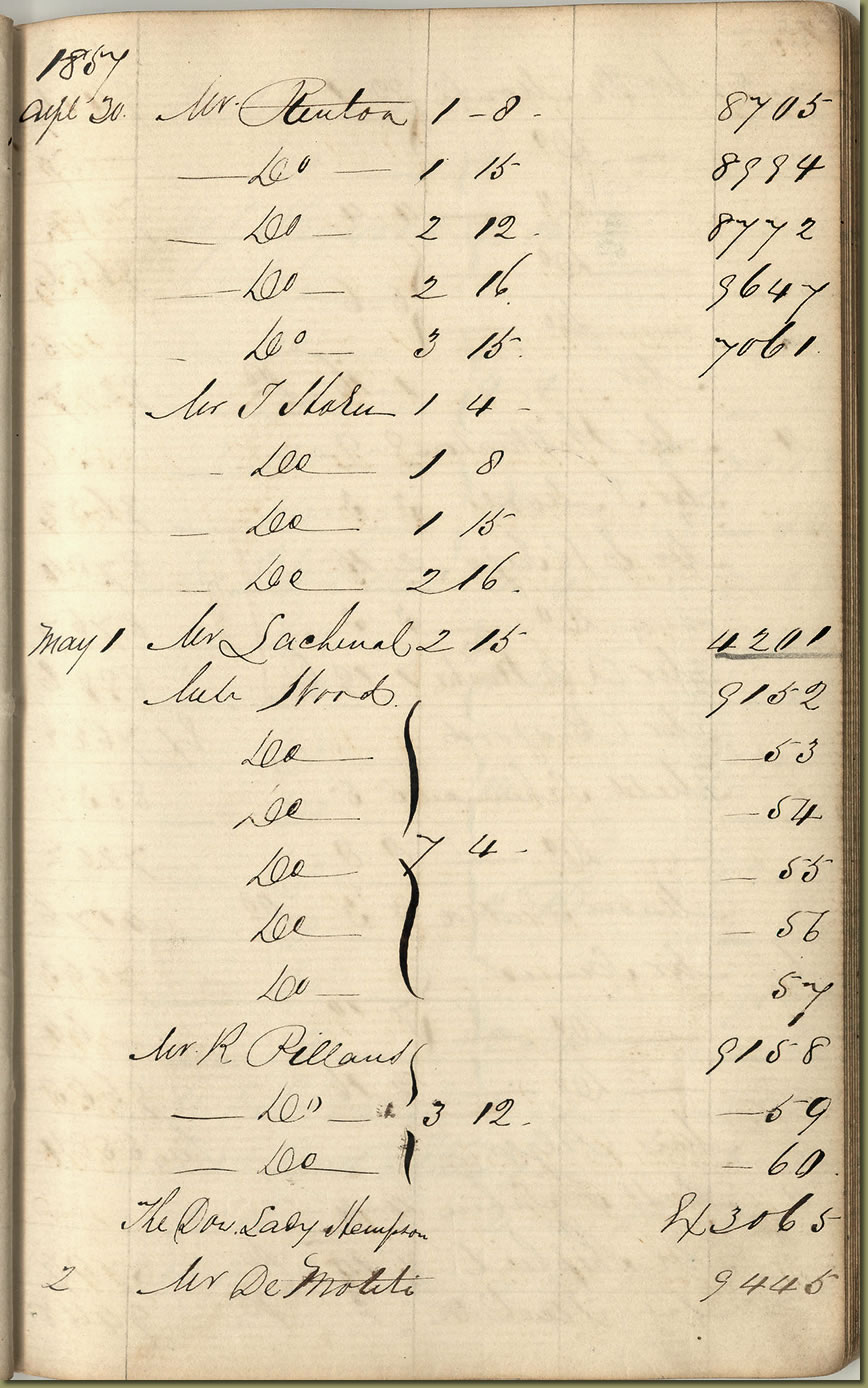 1857
Apl 30. Mr. Renton 1 - 8 - 8705
— Do — 1 15 8994
— Do — 2 12. 8772
— Do — 2 16. 9647
- Do — 3 15. 7061.
Mr J Stoker 1 4 -
- Do — 1 8
— Do — 1 15
- Do — 2 16.
May 1 Mr Lachenal 2 15 4201
Wood. 9152
Do — —53
Do — —54
Do — 7 4 - —55
Do — —56
Do — 57
Mr. R Pillans 9158
— Do — 3 12. —59
— Do —60.
The Dow. Lady Hempson Ex 3065
2 Mr De 9445